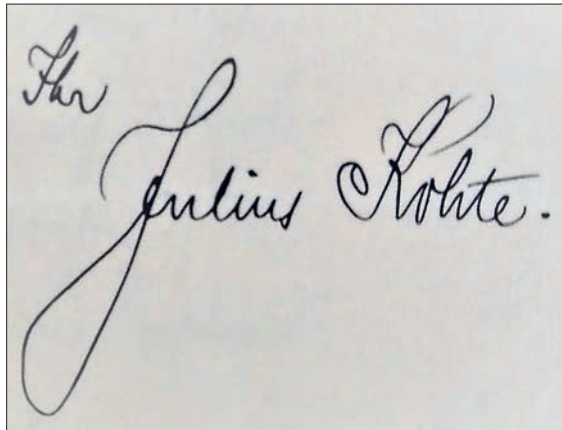 Ihr
Julius Kohte.